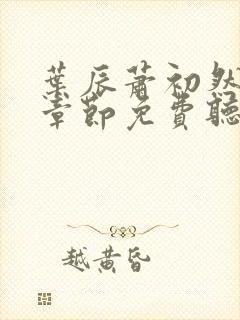 葉辰蕭初然
章節免費聽
越黃昏